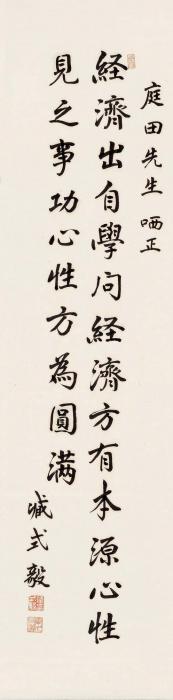 庭田先生 哂正
経濟出自學问経濟方有本源心性
見之事功心性方為圓满
臧式毅